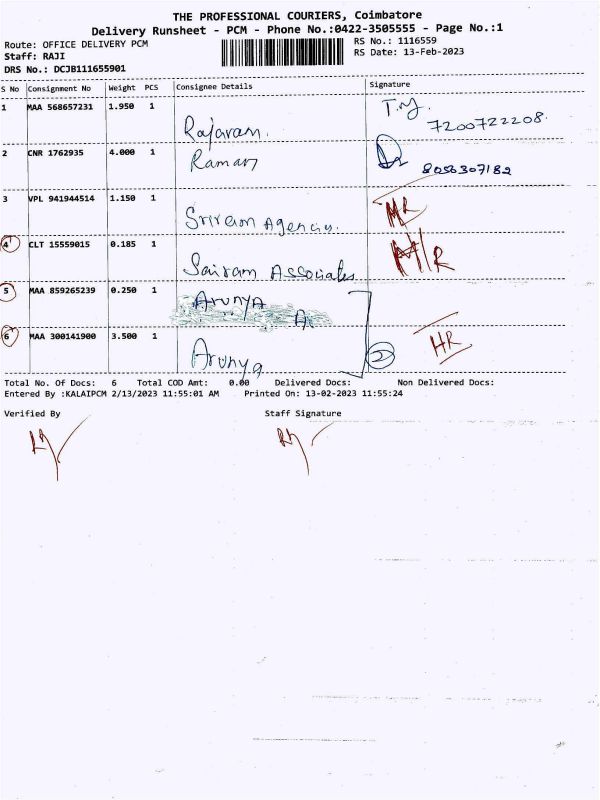 THE PROFESSIONAL COURIERS, Coimbatore
Delivery Runsheet - PCM - Phone No.:0422-3505555 - Page No.:1
Route: OFFICE DELIVERY PCM RS No.: 1116559
Staff: RAJI RS Date: 13-Feb-2023
DRS No.: DCJB111655901
S No Consignment No Weight PCS Consignee Details Signature
1 MAA 568657231 1.950 1 Rajaram.
7200722208.
2 CNR 1762935 4.000 1 Raman
8056307182
3 VPL 941944514 1.150 1 Sriram Agencies. HR
4 CLT 15559015 0.185 1 Sairam Associates
5 MAA 859265239 0.250 1 Arunya
6 MAA 300141900 3.500 1 Arunya 2 HR
Total No. Of Docs: 6 Total COD Amt: 0.00 Delivered Docs: Non Delivered Docs:
Entered By :KALAIPCM 2/13/2023 11:55:01 AM Printed On: 13-02-2023 11:55:24
Verified By Staff Signature